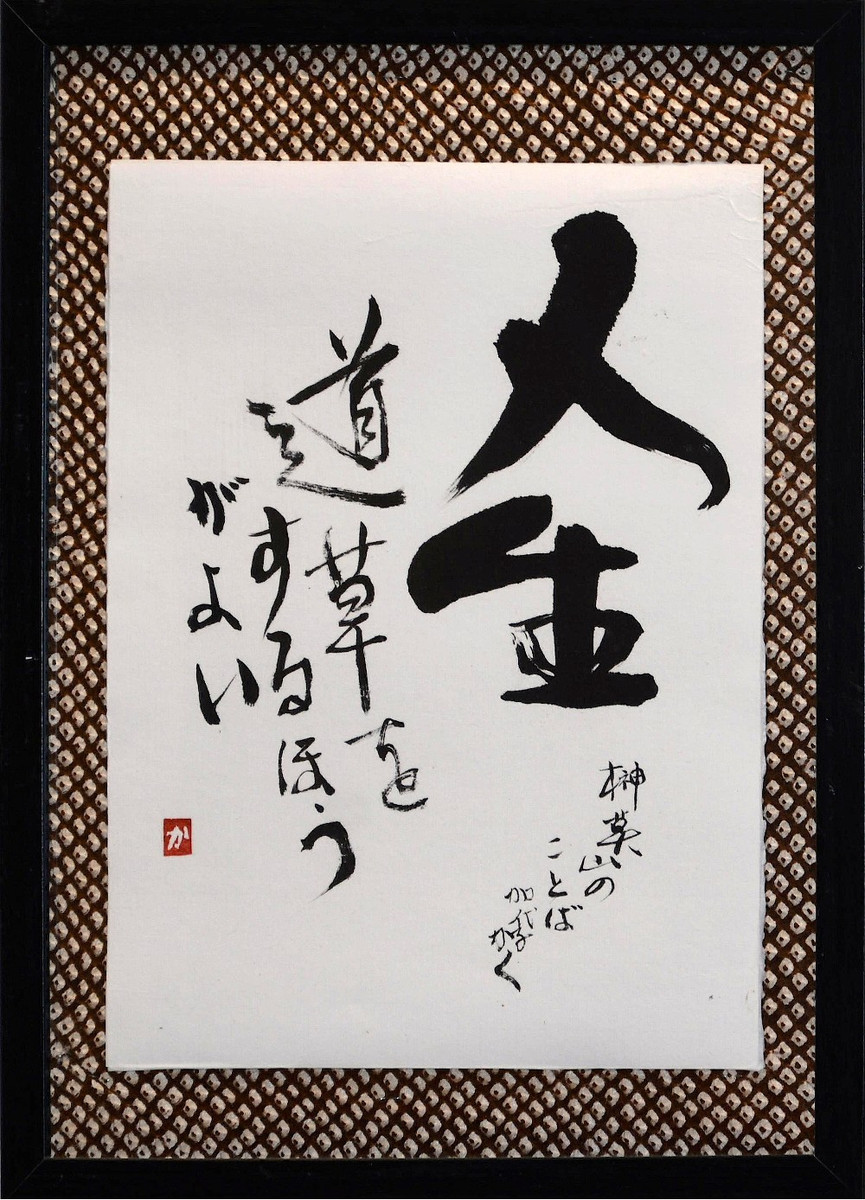 人生
道草を
するほう
がよい
榊莫山の
ことば
加代子
かく
か